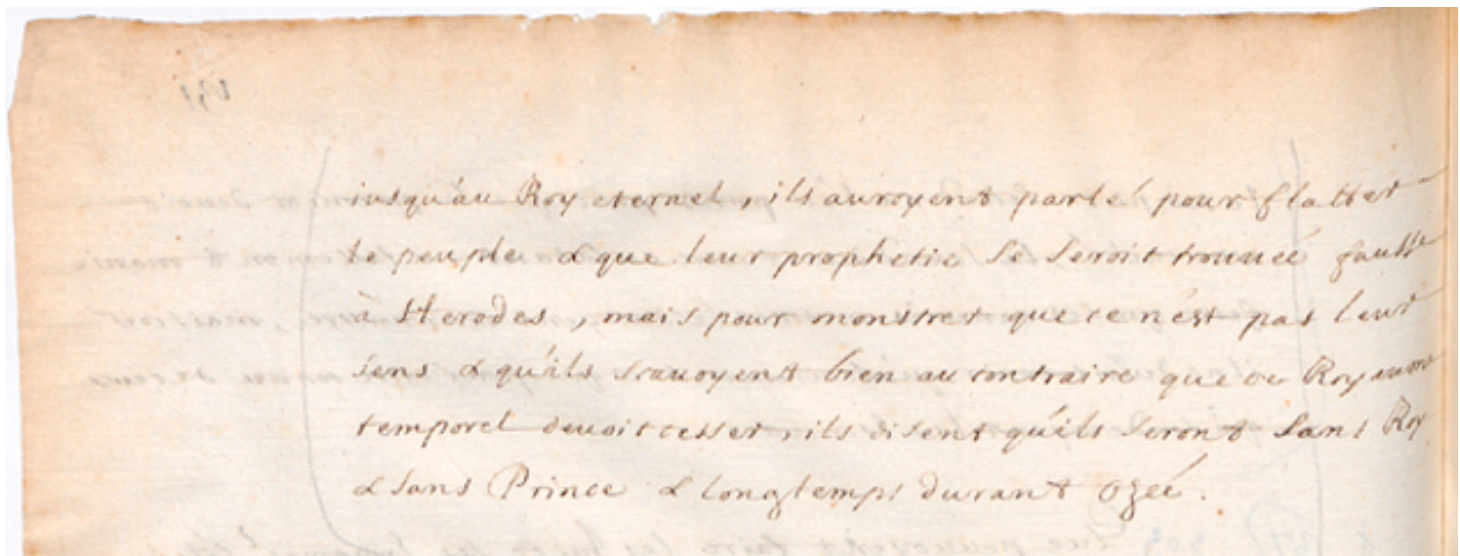 iusqu'au Roy eternel, ils auroyent parlé pour flatter
le peuple & que leur prophetie se seroit trouuée fausse
à Herodes, mais pour monstrer que ce n'est pas leur
sens & qu'ils scauoyent bien au contraire que ce Royaume
temporel deuoit cesser, ils disent qu'ils seront sans Roy
& sans Prince & longtemps durant ozée.